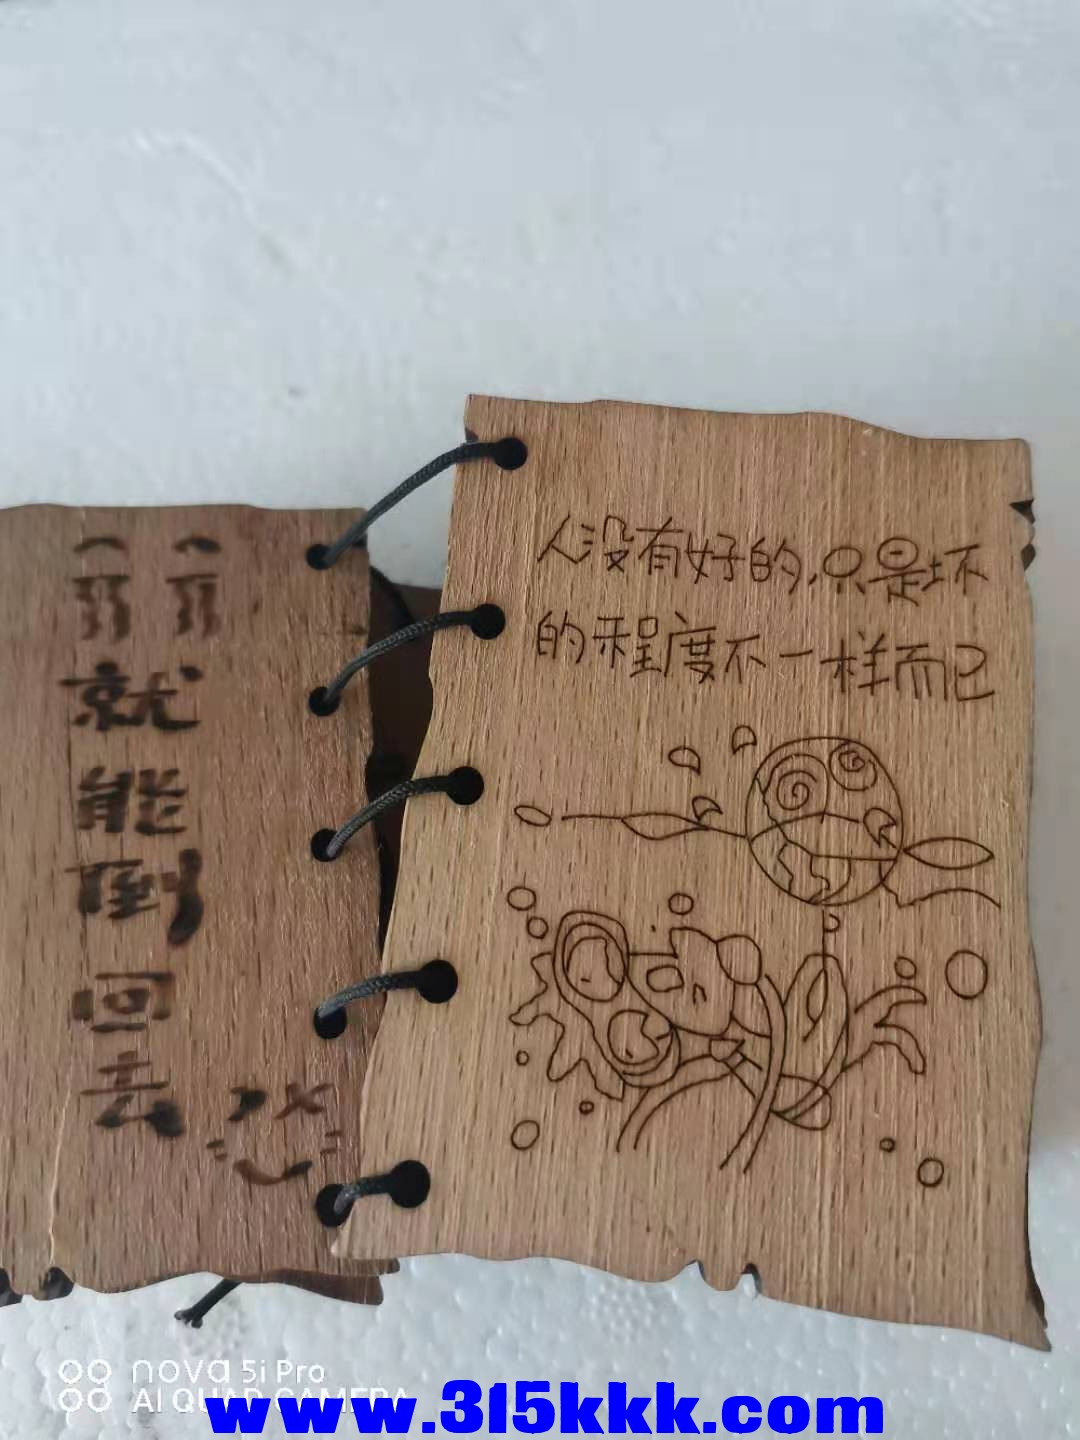 就
能
倒
回
去
人没有好的,只是坏
的程度不一样而已
nova 5i Pro
AI QUAD CAMERA
www.315kkk.com